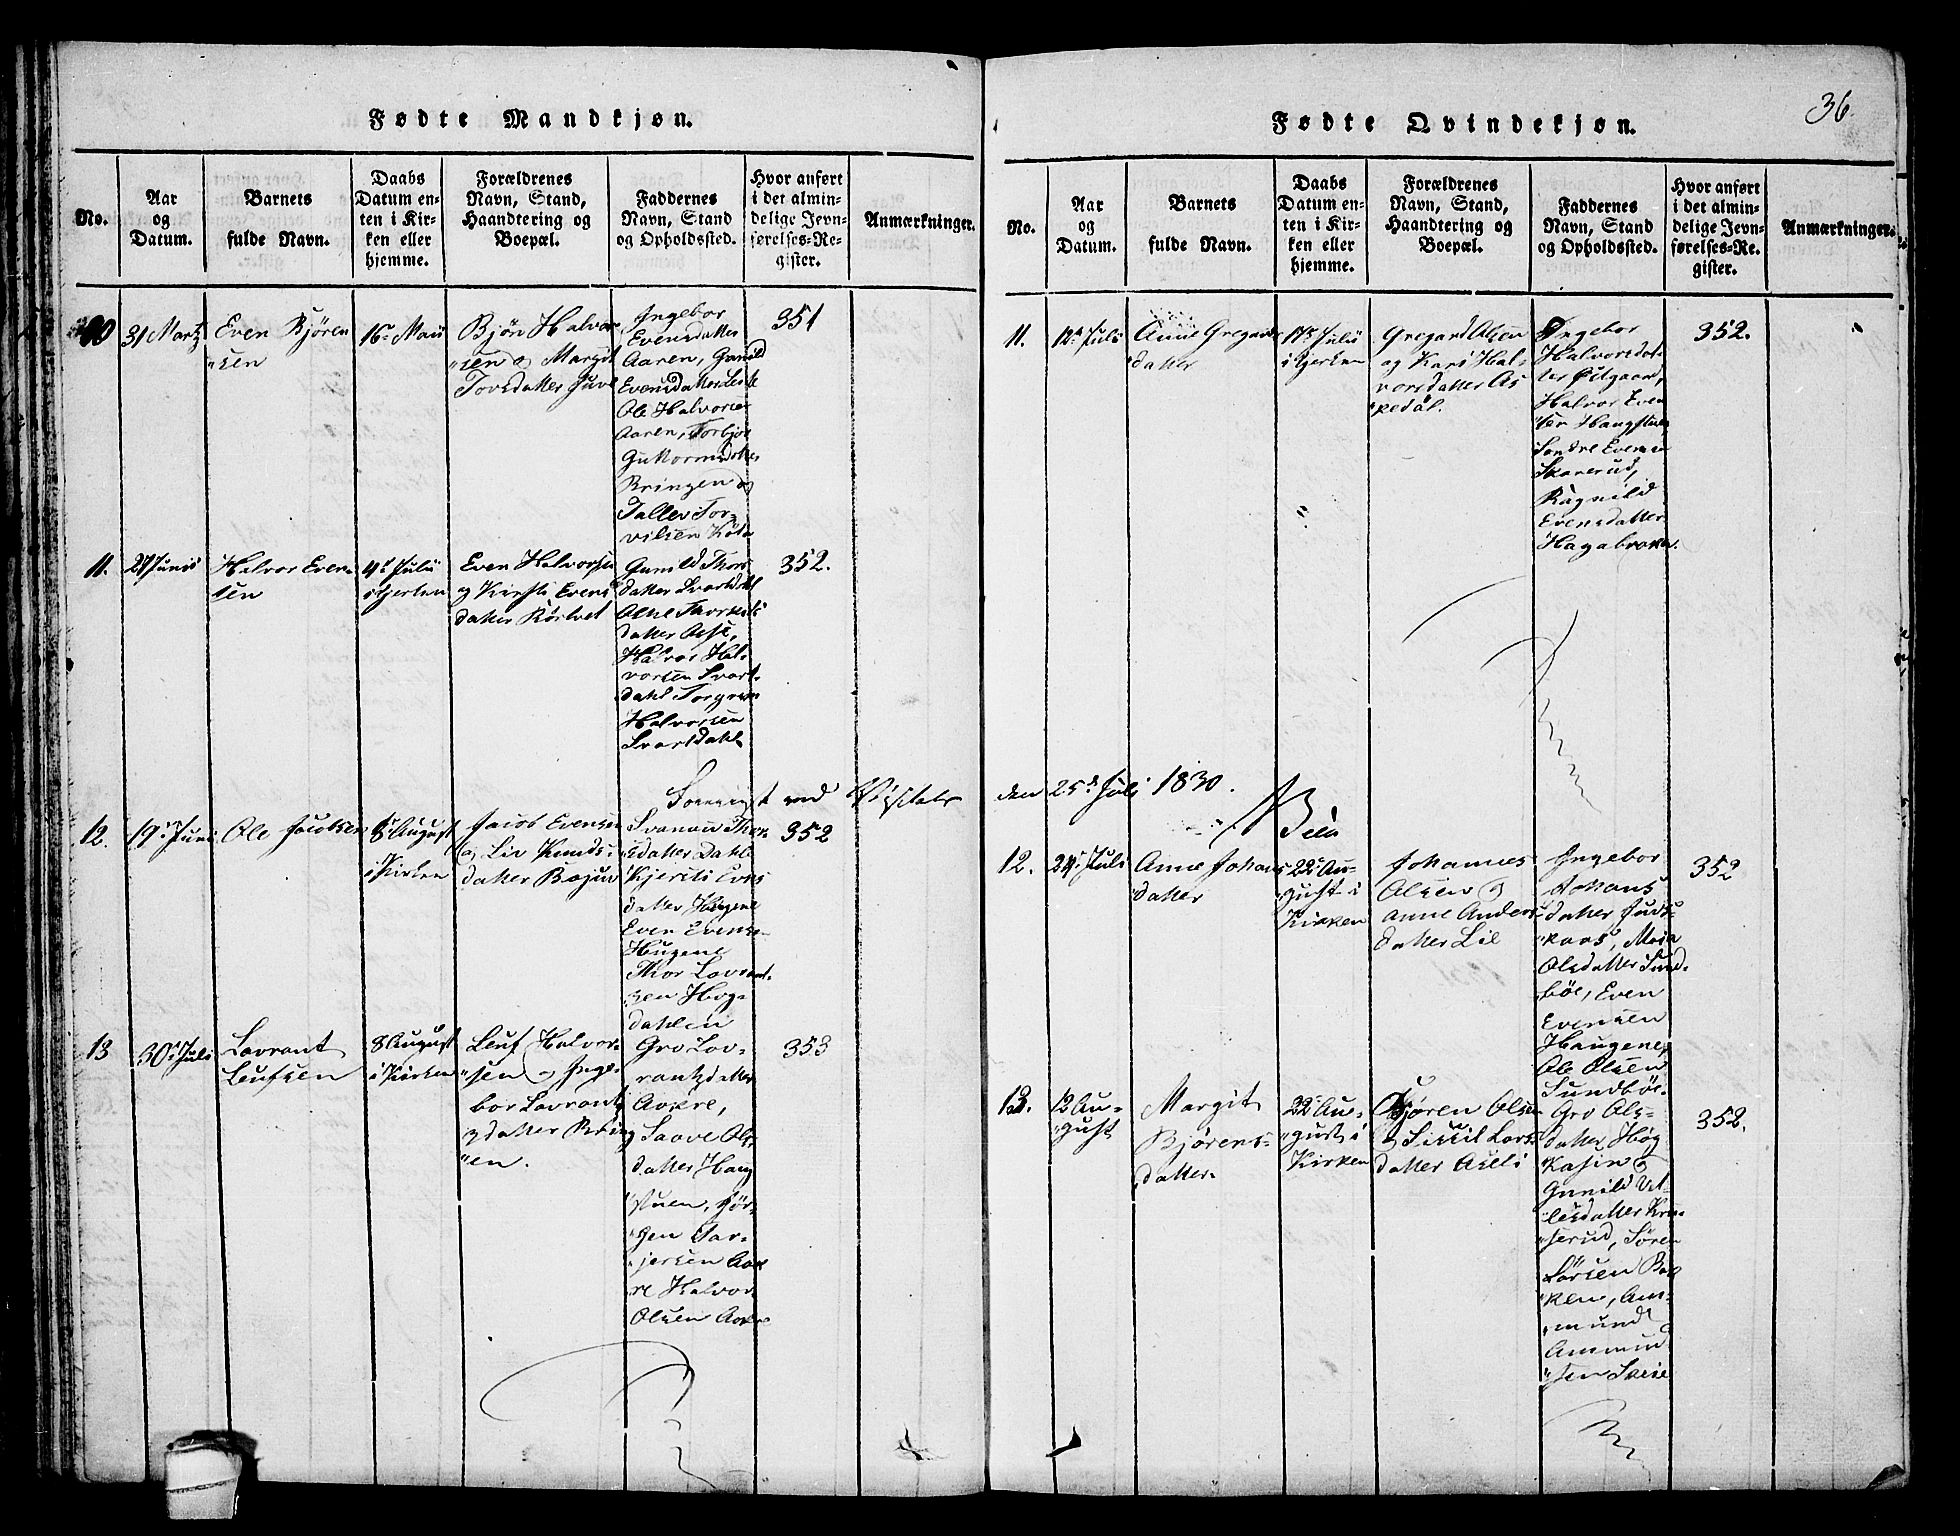 36.
Fødte Mandkjøn.
No.
Aar
og
Datum.
Barnets
fulde Navn.
Daabs
Datum en-
ten i Kir-
ken eller
hjemme.
Forældrenes
Navn, Stand,
Haandtering og
Boepæl.
Faddernes
Navn, Stand
og Opholdssted.
Hvor anført
i det almin-
delige Jevn-
førelses-Re-
gister.
Anmærkninger.
10
31 Martz
Even Bjøren
sen
16 Mai
Bjørn Halvor
sen og Margit
Torsdatter Juve
Ingebor
Evensdatter
Aaren, Gunild
Evensdatter
Ole Halvorsen
Aaren, Torbjør
Guttormsdatter
Bringen og
Tallev Tor-
vilsen
351
11.
27 Junii
Halvor Even-
sen
4d Julii
i Kjerken
Even Halvorsen
og Kirsti Evens
datter
Gunild Thors
datter Svartdal
datter
Halvor Hal-
vorsen Svart-
dahl Torgrim
Halvorsen
Svartdahl
352.
12.
19 Juni
Ole Jacobsen
8 August
i Kirken
Jacob Evensen
og Liv Knuds-
datter
Svanau Thor
datter Dahle
Kjersti Evens
datter Haugene
Even Evensen
Haugene
Thor Lavrant-
sen Høg-
dahlen
352
13
30 Juli
Lavrant
Leufsen
8 August
i Kirken
Leuf Halvor-
sen og Inge-
bor Lavrantz
datter Bring
en.
Gro Lav-
rantzdatter
Aakre,
Saave Ols-
datter Haug
stuen, Jør-
gen Tar-
jersen Aak
re Halvor
Olsen Aakre
353
ved Visitats
den 25d Juli 1830.
Fødte Qvindekjøn.
No.
Aar
og
Datum.
Barnets
fulde Navn.
Daabs
Datum en-
ten i Kir-
ken eller
hjemme.
Forældrenes
Navn, Stand,
Haandtering og
Boepæl.
Faddernes
Navn, Stand
og Opholdssted.
Hvor anført
i det almin-
delige Jevn-
førelses-Re-
gister.
Anmærkninger.
11.
12 Juli
Anne Gregards
datter
Julii
i Kjerken
Gregard Olsen
og Kari Hal-
vorsdatter As
pedal.
Ingebor
Halvorsdat-
ter Østgaard,
Halvor Even
sen Haugstuen
Sondre Evensen
Skarerud,
Ragnild
Evensdatter
Hagabraaten.
352.
12.
24 Juli
Anne Johans
datter
22 Au-
gust i
Kirken
Johannes
Olsen og
Anne Anders
datter Lie
Ingebor
Johans
datter Juds-
kaas, Maia
Olsdatter Sund-
bøe, Even
Evensen
Haugene,
Ole Olsen
Sundbøe.
352
13.
12 Au-
gust
Margit
Bjørens-
datter
22 Au-
gust i
Kirken
Bjøren Olsen
og Sissil Lars
datter Aseli
Gro Ols-
datter Høg
kasin og
Gunild Vet-
lesdatter
Søren
Larsen Bak
ken, Am-
mund
Ammund
sen
352.